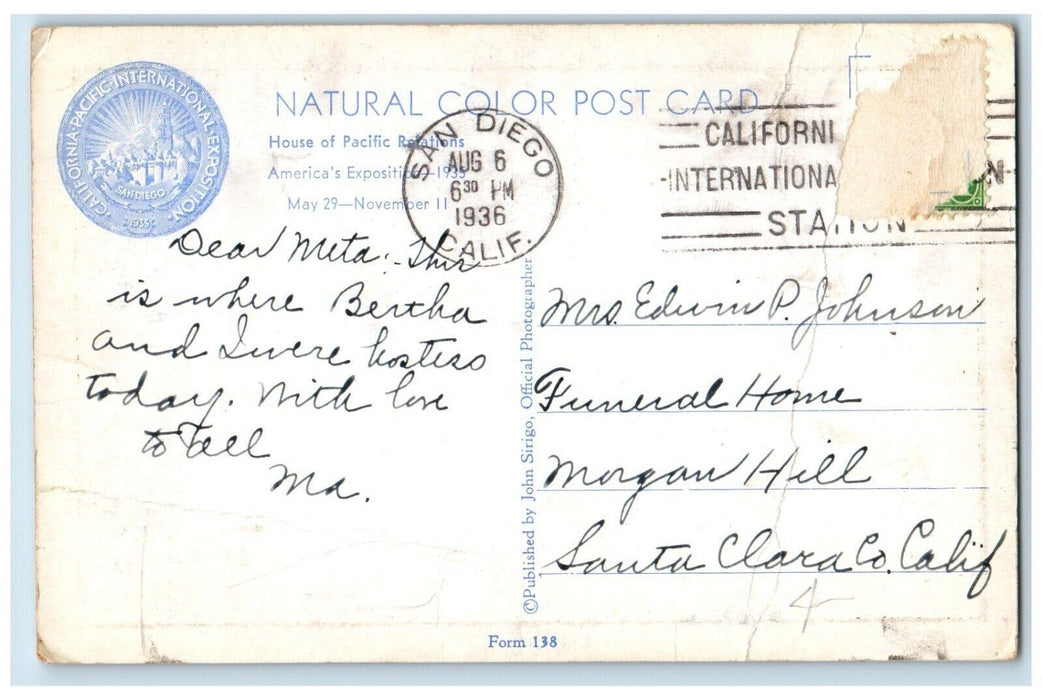 CALIFORNIA·PACIFIC·INTERNATIONAL·EXPOSITION·
SAN DIEGO
1935
NATURAL COLOR POST CARD
House of Pacific Relations
America's Exposition—1935
May 29—November 11
SAN DIEGO
AUG 6
6 30 PM
1936
CALIF.
CALIFORNI
INTERNATIONA
N
STATION
Dear Meta:- This
is where Bertha
and I were hostess
today. With love
to all
Ma.
©Published by John Sirigo, Official Photographer
Mrs. Edwin P. Johnson
Funeral Home
Morgan Hill
Santa Clara Co. Calif
4
Form 138